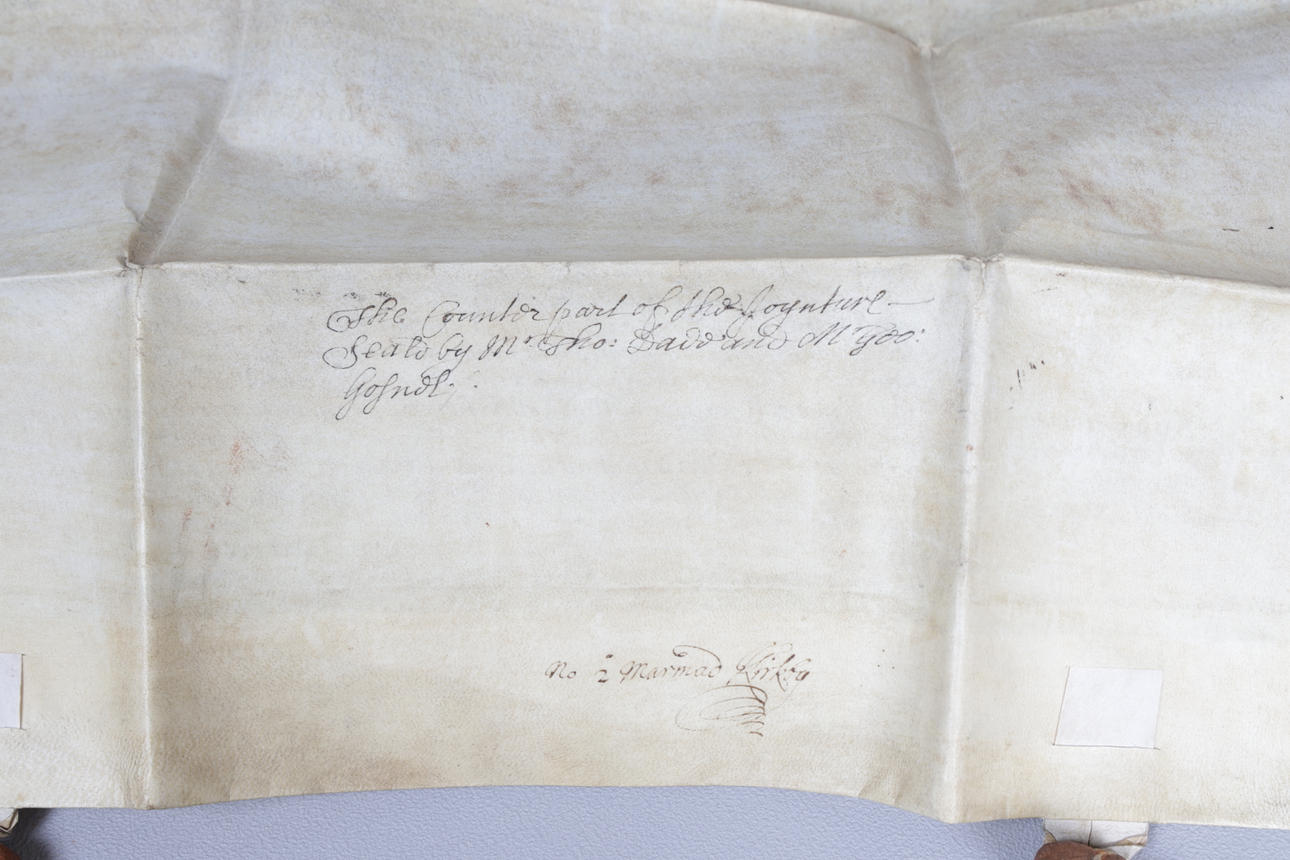 The Counter part of the Joynture
Seald by Mr Tho: Dadd and Mr Geo:
Gosnel:
No 2 Marmad Kirkby